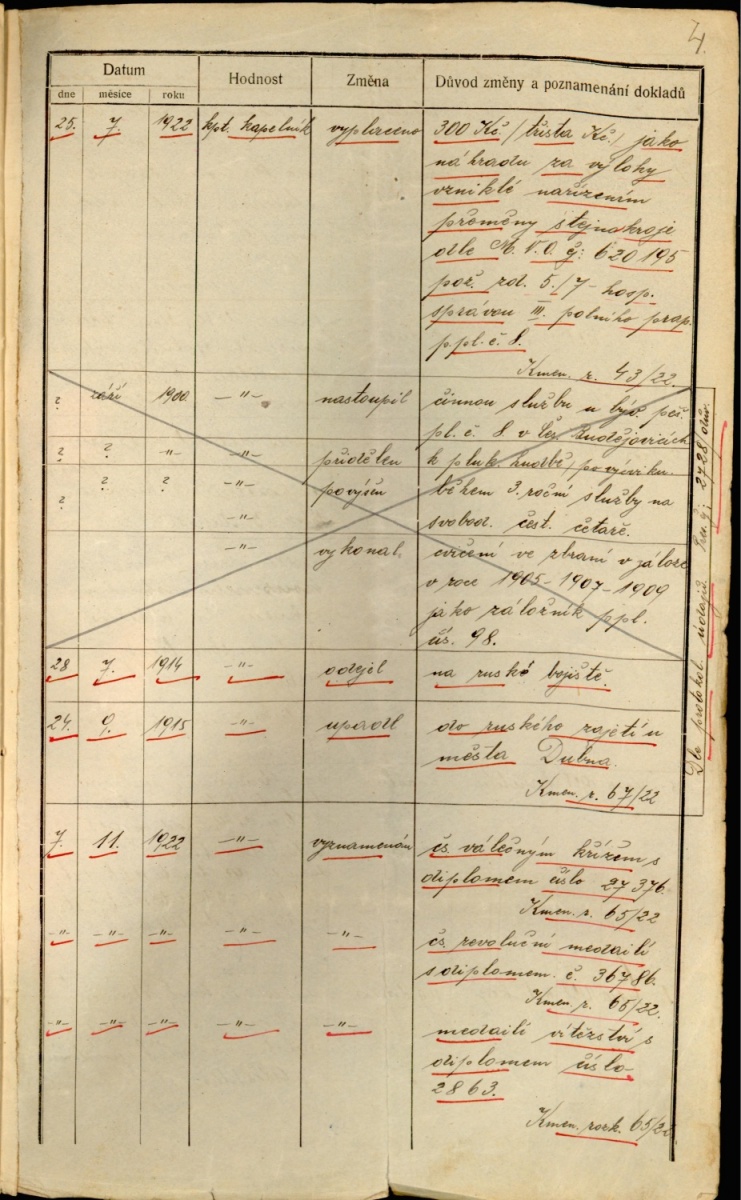 4.
Datum Hodnost Změna Důvod změny a poznamenání dokladů
dne měsíce roku
25. 7. 1922 kpt. kapelník vyplaceno 300 Kč / třista Kč / jako
náhradu za výlohy
vzniklé nařízením
přeměny stejnokroje
dle M.N.O. čj: 620195
pož. zd. 5./7 - hosp.
správou III. polního prap.
p.pl. č. 8.
Kmen. r. 43/22.
? září 1900 —"— nastoupil činnou službu u býv. pěš.
pl. č. 8 v
? ? —"— —"— přidělen k pluk. hudbě, po výcviku.
? ? ? —"— povýšen během 3. roční služby na
—"— svobod. čest. četaře.
—"— vykonal cvičení ve zbrani v záloze
v roce 1905 - 1907 - 1909
jako záložník p.pl.
čís. 98.
28 7. 1914 —"— odejel na ruské bojiště.
24. 9. 1915 —"— upadl do ruského zajetí u
města Dubna.
Kmen. r. 67/22
7. 11. 1922 —"— vyznamenán čs. válečným křížem s
diplomem číslo 27376.
Kmen. r. 65/22
—"— —"— —"— —"— —"— čs. revoluční medailí
s diplomem č. 36786.
Kmen. r. 65/22.
—"— —"— —"— —"— —"— medailí vítězství s
diplomem číslo
2863.
Kmen. rozk. 65/22
Dle protokol. údajů. čj 2728/dův.